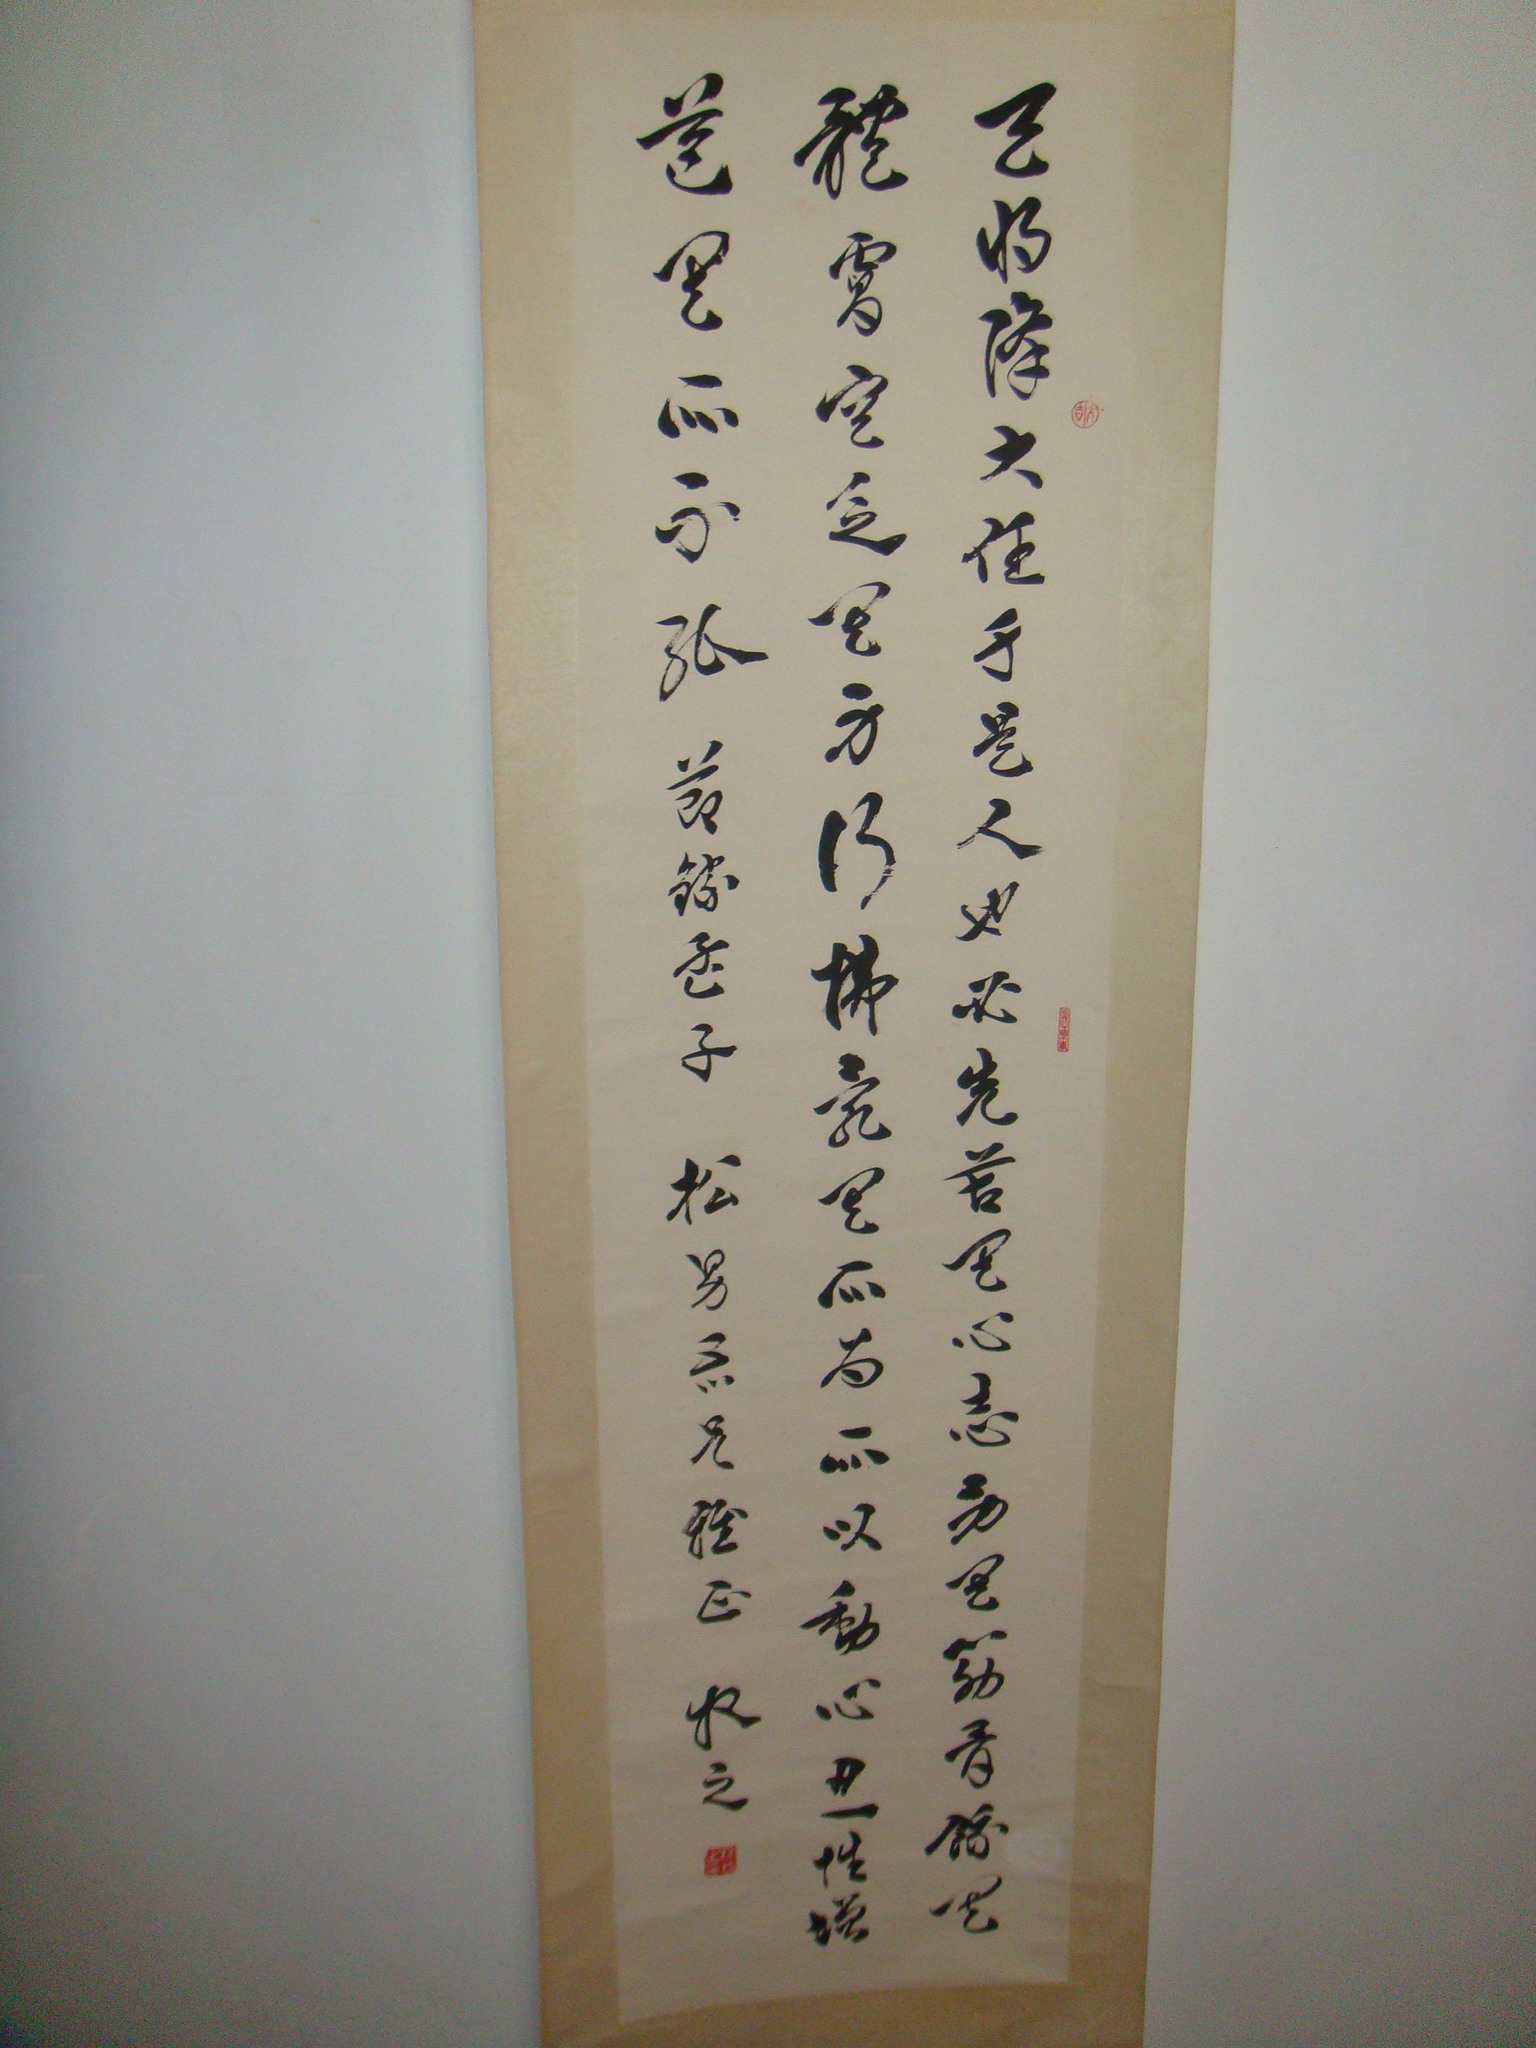 天將降大任于是人也必先苦其心志勞其筋骨餓其
體膚空乏其身行拂亂其所為所以動心忍性增
益其所不能 節錄孟子 松男吾兄雅正 牧之